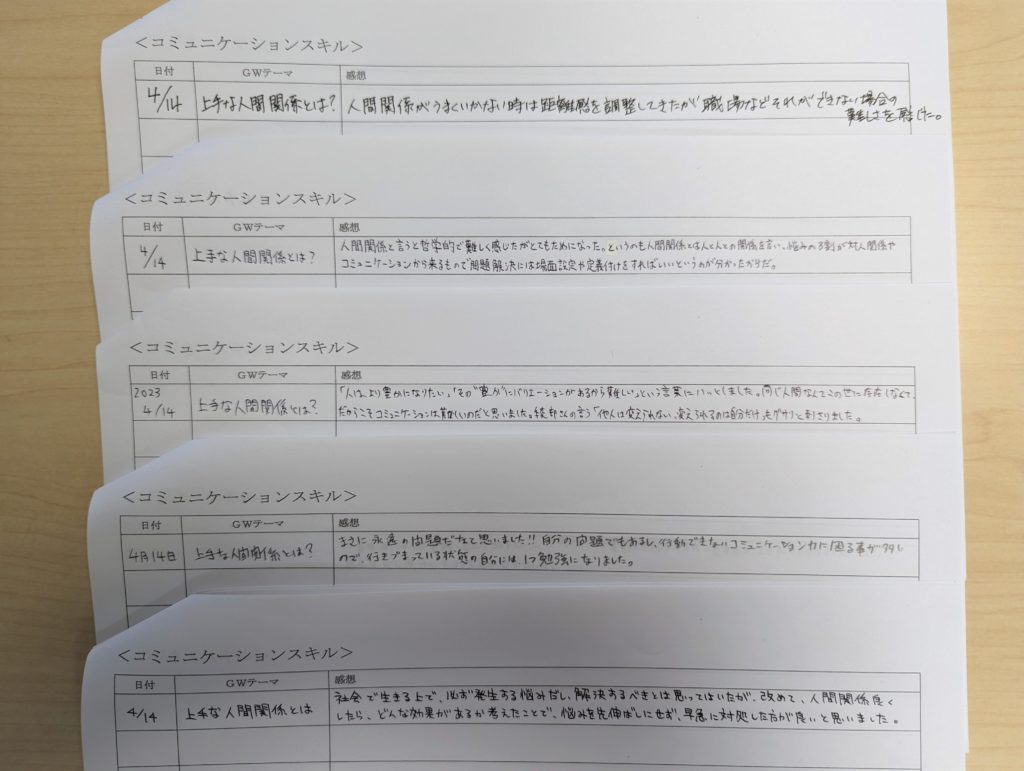 ＜コミュニケーションスキル＞
日付 GWテーマ 感想
4/14 上手な人間関係とは? 人間関係がうまくいかない時は距離感を調整してきたが職場などそれができない場合の
難しさを感じた。
＜コミュニケーションスキル＞
日付 GWテーマ 感想
4/14 上手な人間関係とは? 人間関係と言うと哲学的で難しく感じたがとてもためになった。というのも人間関係とは人と人との関係を言い、悩みの8割が対人関係や
コミュニケーションから来るもので問題解決には場面設定や定義付けをすればいいというのが分かったからだ。
＜コミュニケーションスキル＞
日付 GWテーマ 感想
2023
4/14 上手な人間関係とは? 「人は、より豊かになりたい」「その"豊か"にバリエーションがあるから難しい」という言葉にハッとしました。同じ人間なんてこの世に存在しなくて、
だからこそコミュニケーションは難しいのだと思いました。さんの言う「他人は変えられない、変えられるのは自分だけ」もグサッとささりました。
＜コミュニケーションスキル＞
日付 GWテーマ 感想
4月14日 上手な人間関係とは? まさに永遠の問題だなと思いました!! 自分の問題でもあるし、行動できないコミュニケーション力に困る事が多い
ので、行きづまっている状態の自分には、1つ勉強になりました。
＜コミュニケーションスキル＞
日付 GWテーマ 感想
4/14 上手な人間関係とは 社会で生きる上で、必ず発生する悩みだし、解決するべきとは思ってはいたが、改めて、人間関係良く
したら、どんな効果があるか考えたことで、悩みを先伸ばしにせず、早急に対処した方が良いと思いました。